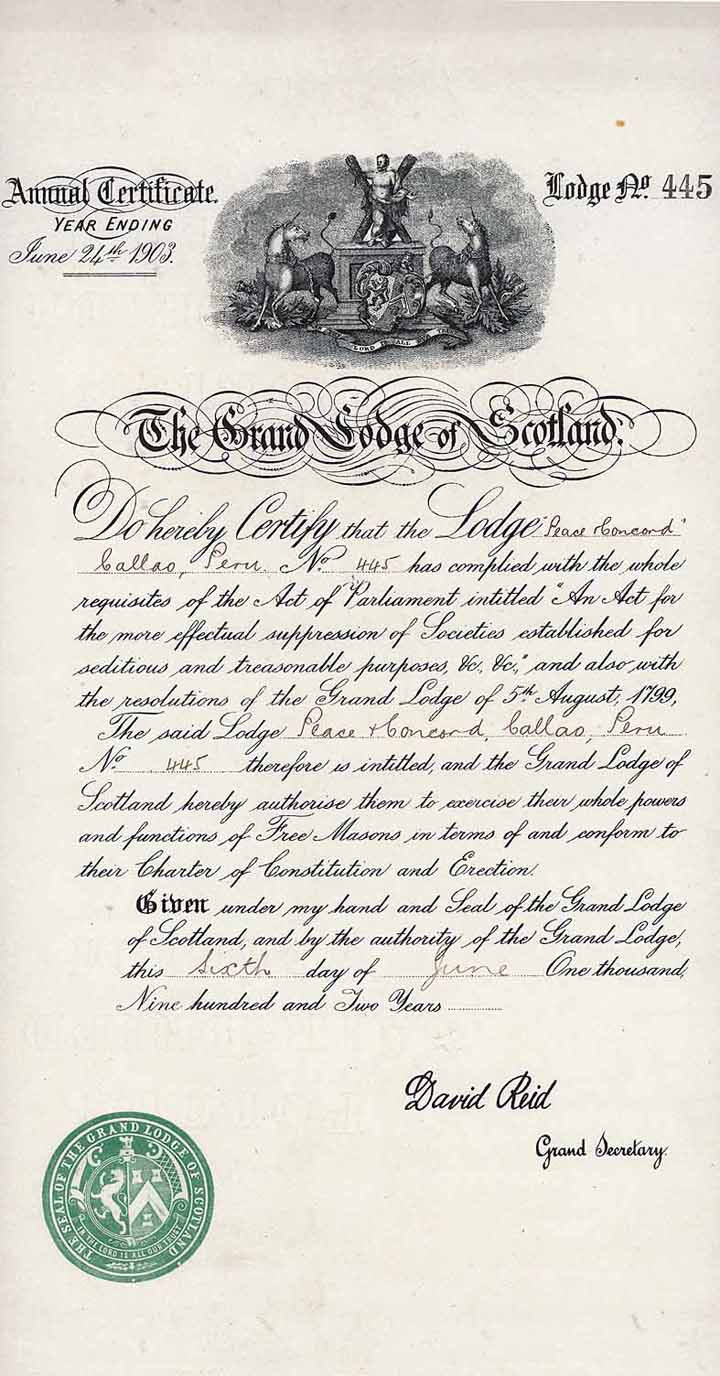 Annual Certificate.
YEAR ENDING
June 24th 1903.
Lodge No. 445
The Grand Lodge of Scotland.
Do hereby Certify that the Lodge "Peace & Concord"
Callao, Peru. No. 445 has complied with the whole
requisites of the Act of Parliament intitled "An Act for
the more effectual suppression of Societies established for
seditious and treasonable purposes, &c, &c," and also with
the resolutions of the Grand Lodge of 5th August, 1799,
The said Lodge Peace & Concord, Callao, Peru
No. 445 therefore is intitled, and the Grand Lodge of
Scotland hereby authorise them to exercise their whole powers
and functions of Free Masons in terms of and conform to
their Charter of Constitution and Erection.
Given under my hand and Seal of the Grand Lodge
of Scotland, and by the authority of the Grand Lodge,
this Sixth day of June One thousand,
Nine hundred and Two Years
David Reid
Grand Secretary.
THE SEAL OF THE GRAND LODGE OF SCOTLAND
IN THE LORD IS ALL OUR TRUST